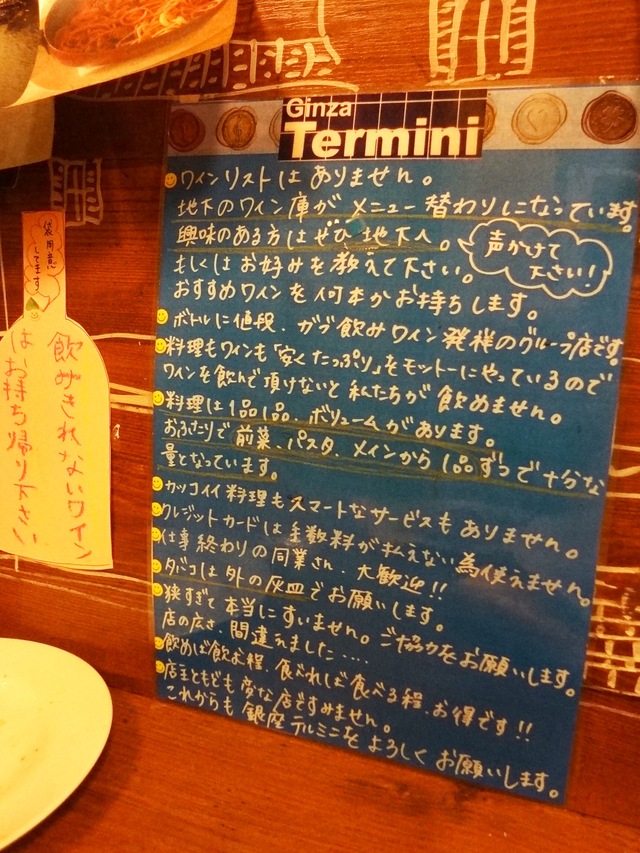 Ginza
Termini
ワインリストはありません。
地下のワイン庫がメニュー替わりになっています。
興味のある方はぜひ地下へ。
声かけて
下さい!
もしくはお好みを教えて下さい。
おすすめワインを何本かお持ちします。
ボトルに値段、ガブ飲みワイン発祥のグループ店です。
料理もワインも「安くたっぷり」をモットーにやっているので
ワインを飲んで頂けないと私たちが飲めません。
料理は1品1品、ボリュームがあります。
おふたりで前菜、パスタ、メインから1品ずつで十分な
量となっています。
カッコイイ料理もスマートなサービスもありません。
クレジットカードは手数料が払えない為使えません。
仕事終わりの同業さん、大歓迎!!
タバコは外の灰皿でお願いします。
狭すぎて本当にすいません。ご協力をお願いします。
店の広さ、間違えました....
飲めば飲む程、食べれば食べる程、お得です!!
店主ともども変な店ですみません。
これからも銀座テルミニをよろしくお願いします。
袋用意
してます
飲みきれないワイン
はお持ち帰り下さい